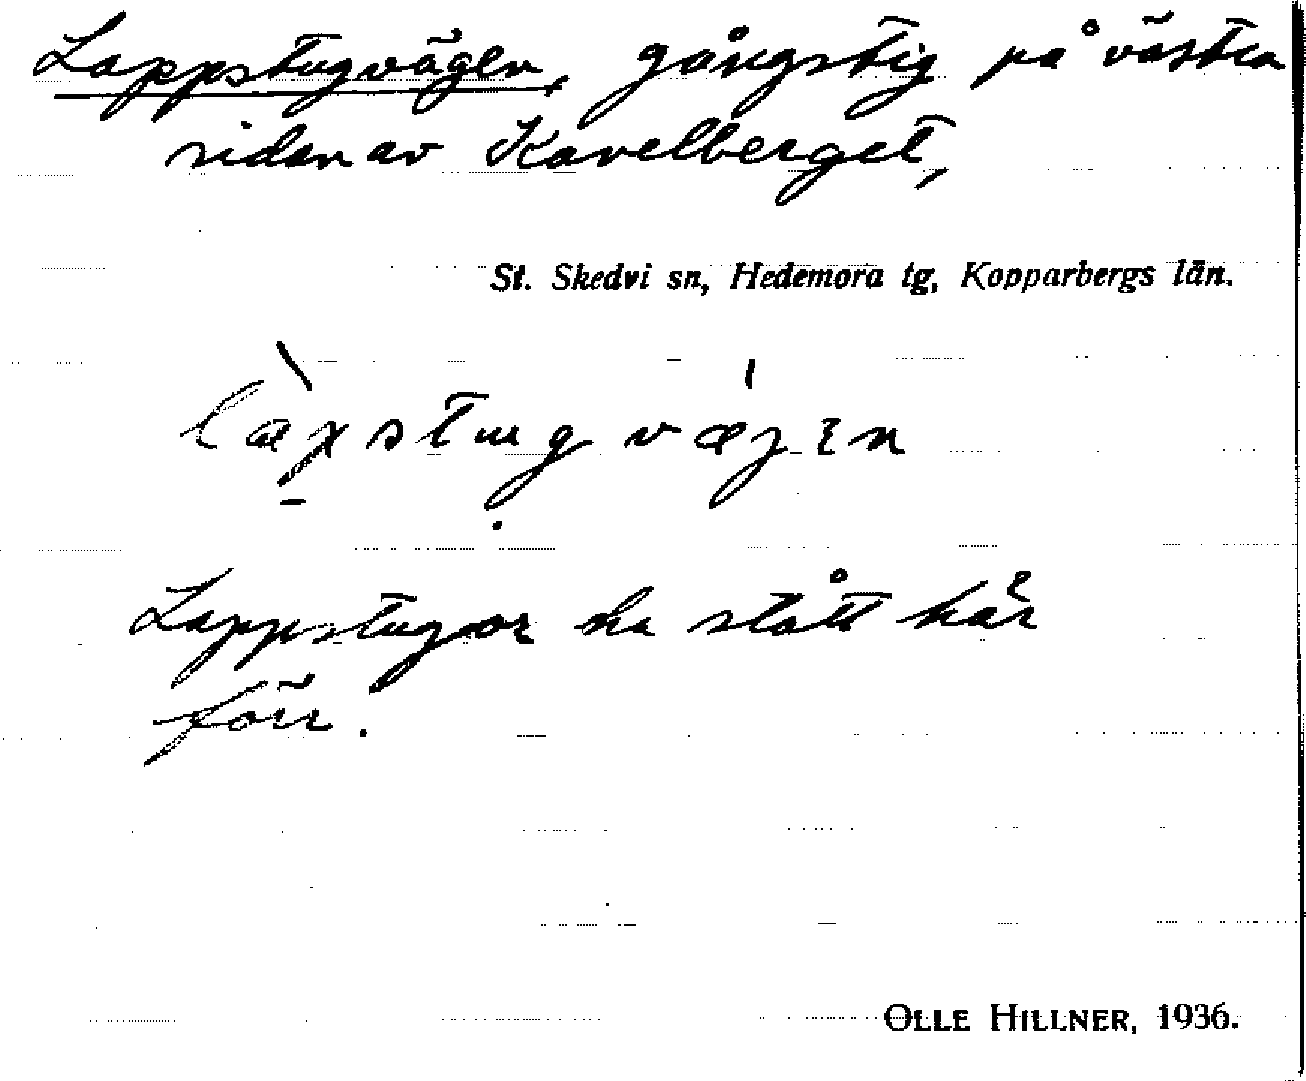 Lappstugvägen, gångstig på västra
sidan av Kavelberget,
St. Skedvi sn, Hedemora tg, Kopparbergs län.
Lappstugor ha stått här
förr.
OLLE HILLNER, 1936.